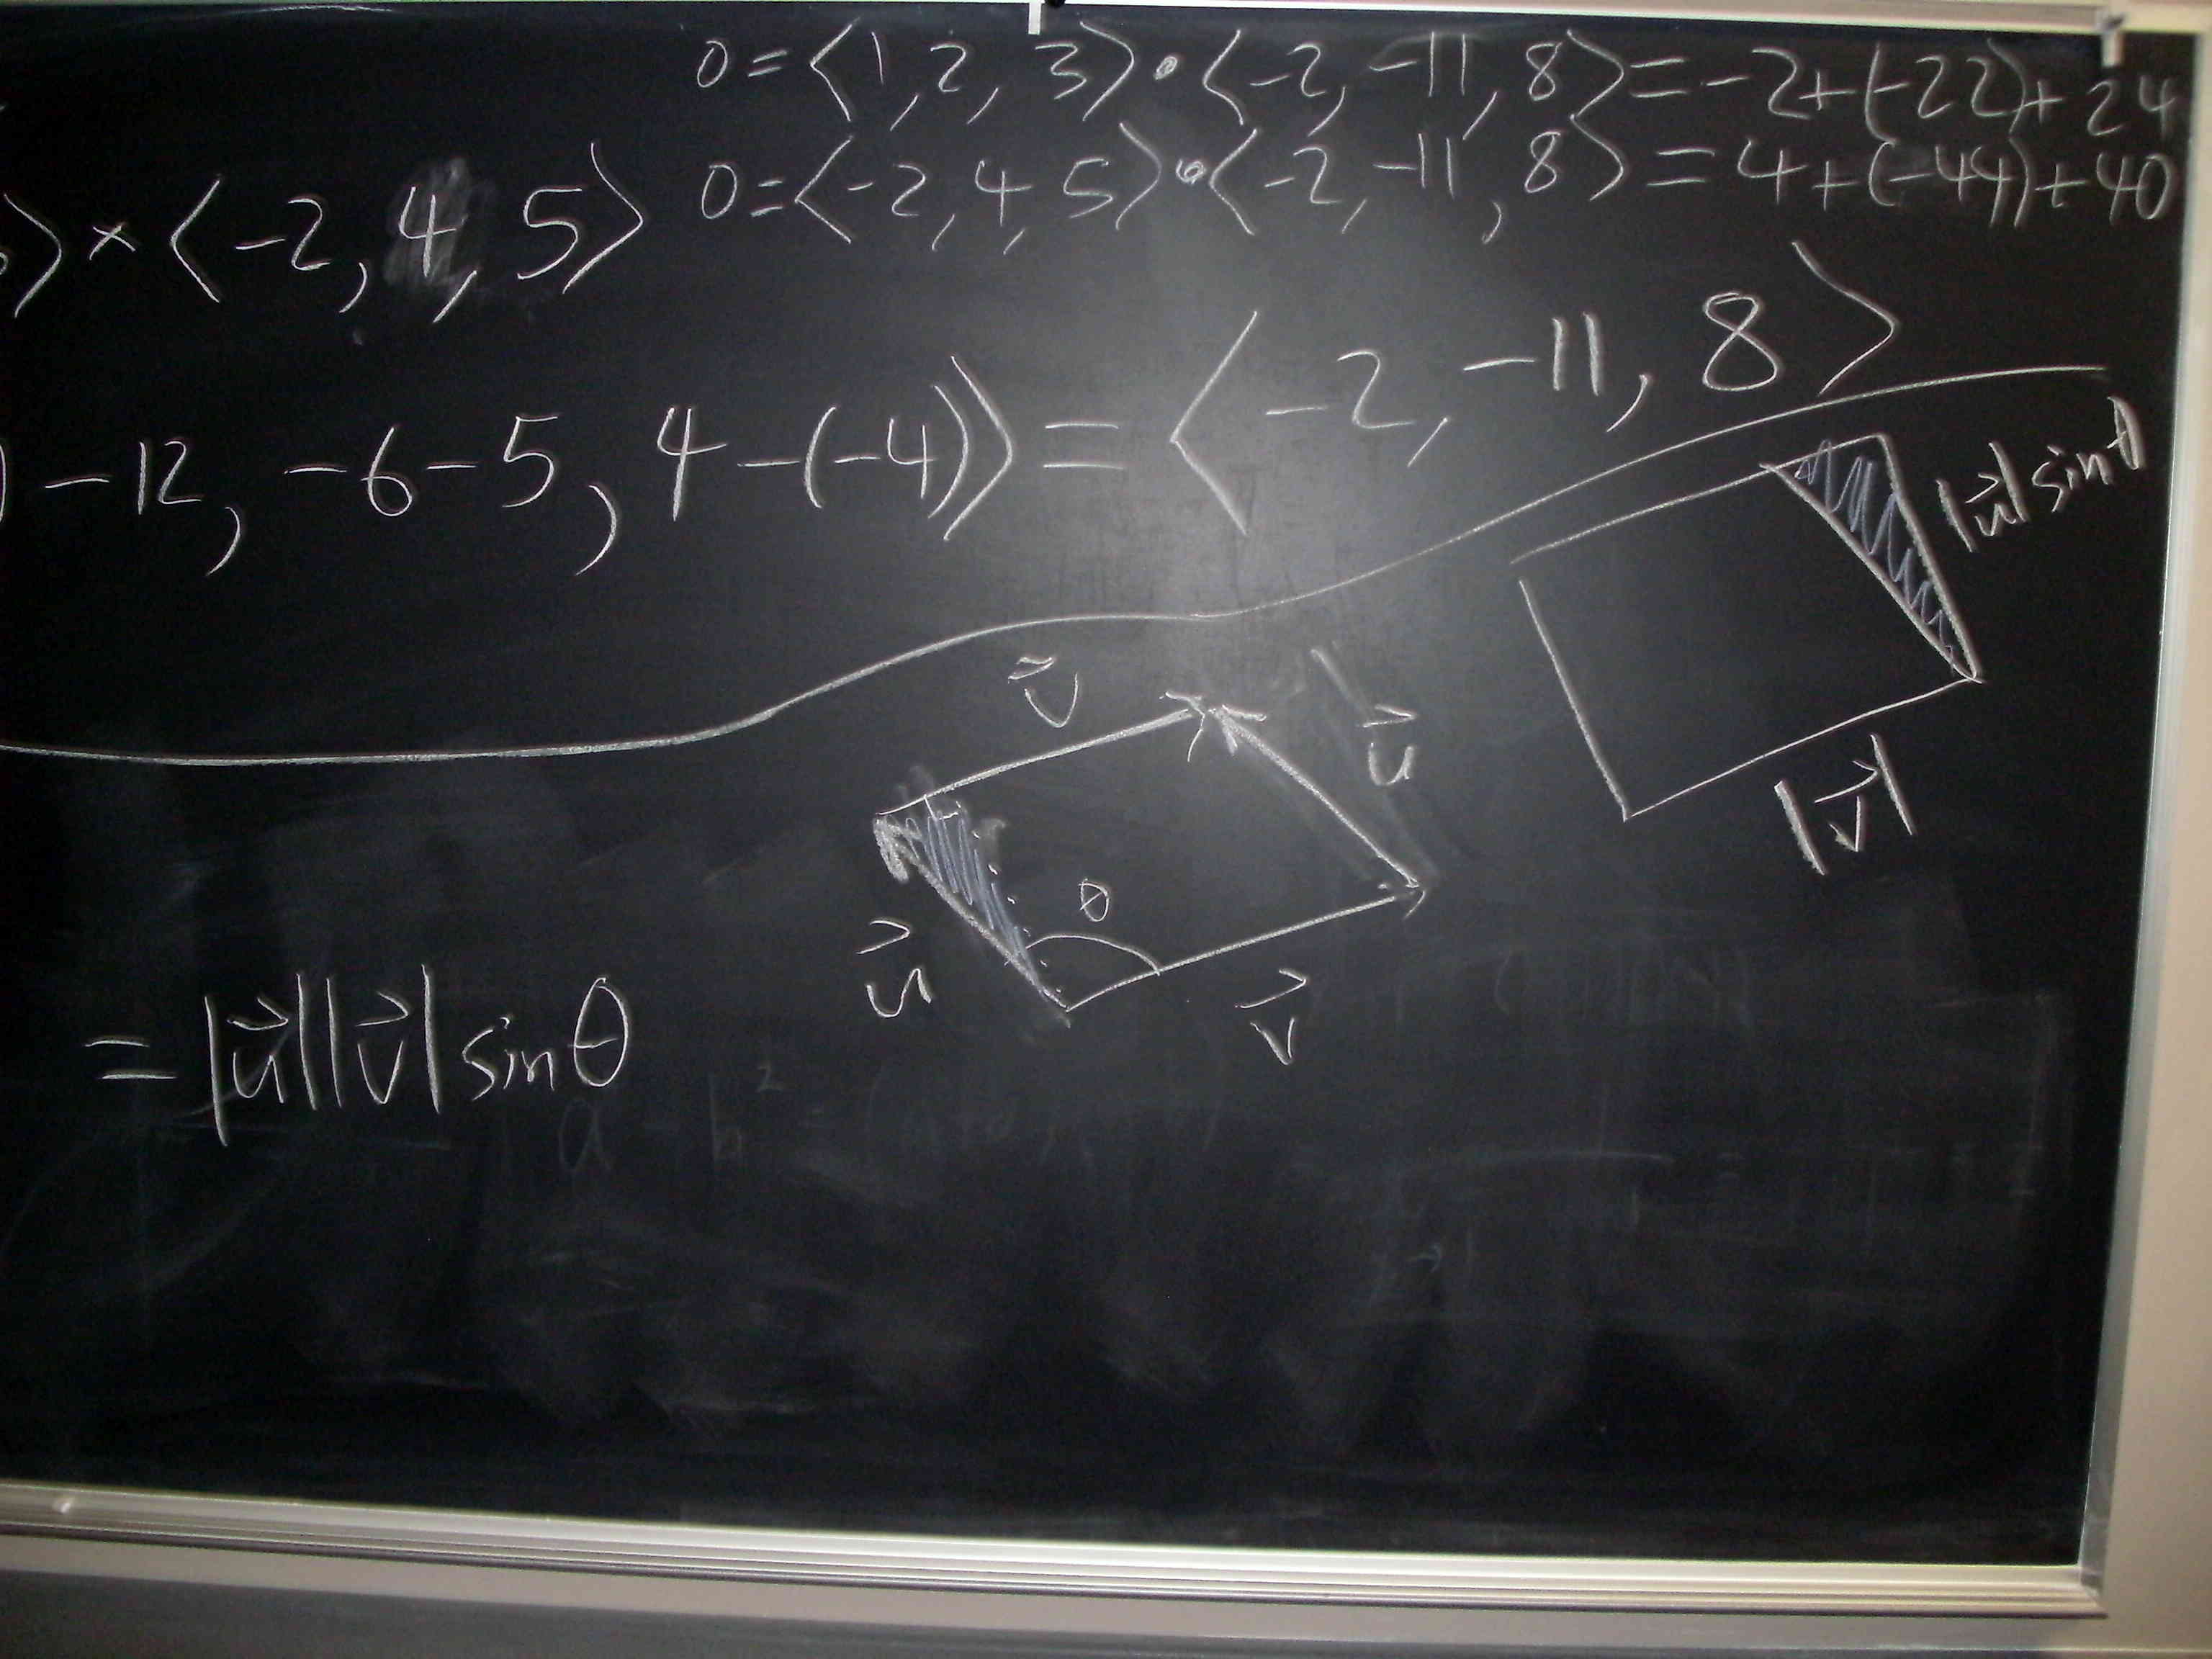 0 = ⟨1, 2, 3⟩ • ⟨-2, -11, 8⟩ = -2 + (-22) + 24
0 = ⟨-2, 4, 5⟩ • ⟨-2, -11, 8⟩ = 4 + (-44) + 40
⟩ × ⟨-2, 4, 5⟩
-12, -6-5, 4-(-4)⟩ = ⟨-2, -11, 8⟩
|u⃗| sin θ
v⃗
u⃗
|v⃗|
θ
u⃗
v⃗
= |u⃗||v⃗| sin θ